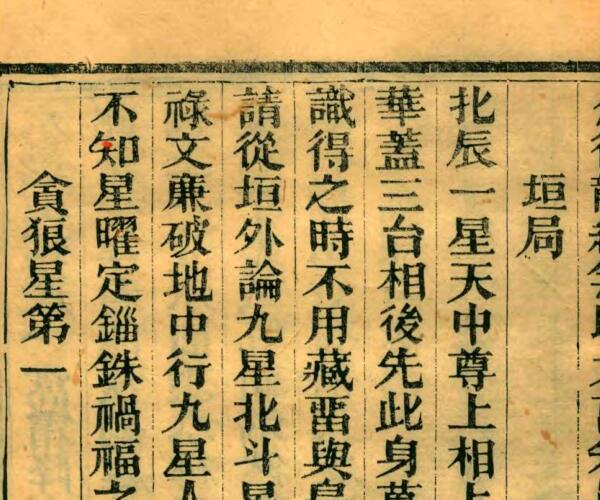 垣局
北辰一星天中尊上相上
華蓋三台相後先此身
識得之時不用藏畱與
請從垣外論九星北斗星
祿文廉破地中行九星人
不知星曜定錙銖禍福之
貪狼星第一